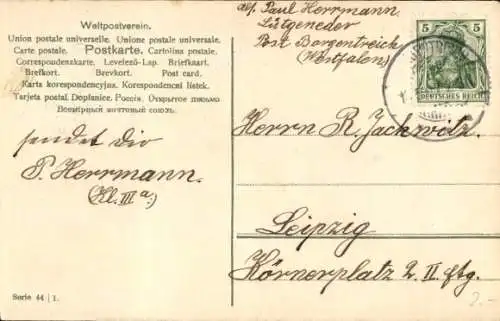 Weltpostverein.
Union postale universelle. Unione postale universale.
Carte postale. Postkarte. Cartolina postale.
Correspondenzkarte. Levelező-Lap. Briefkaart.
Brefkort. Brevkort. Post card.
Karta korespondencyjna. Korespondenční listek.
Tarjeta postal. Dopisnice. Россія. Открытое письмо
Всемірный почтовый союзъ.
Abs. Paul Herrmann.
Lütgeneder
Post Borgentreich
(Westfalen)
5 5
DEUTSCHES REICH
Herrn R. Jackwitz
sendet Dir
P. Herrmann.
(Kl. III a.)
Leipzig
Körnerplatz 2. II. Etg.
Serie 44 | 1.
2.-